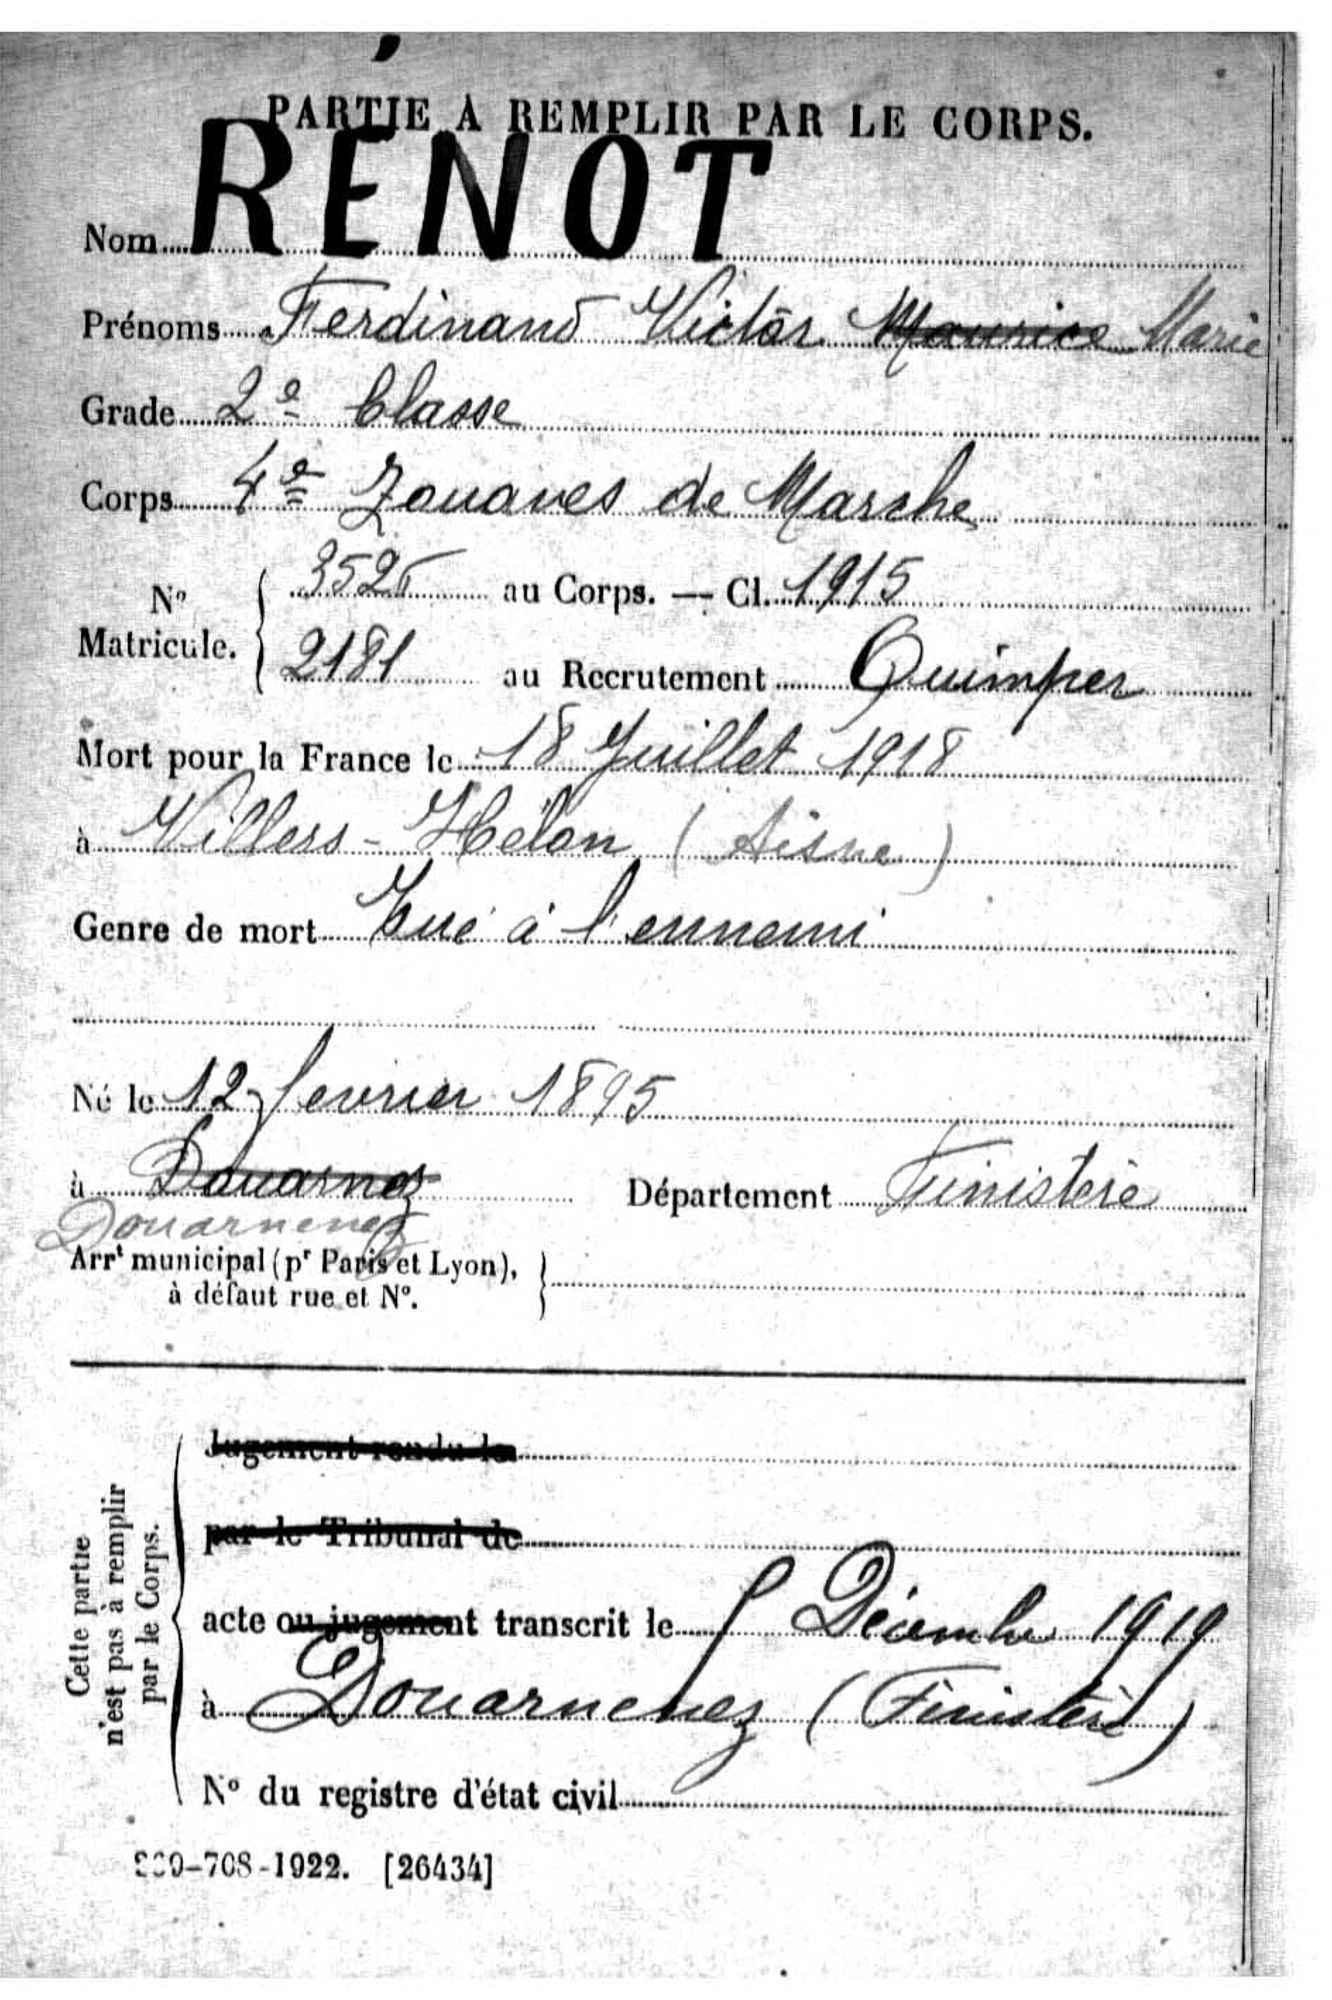 PARTIE À REMPLIR PAR LE CORPS.
Nom RÉNOT
Prénoms Ferdinand Victor Maurice Marie
Grade 2e Classe
Corps 4e Zouaves de Marche
No Matricule. { 3525 au Corps. — Cl. 1915
2181 au Recrutement Quimper
Mort pour la France le 18 Juillet 1918
à Villers-Hélon (Aisne)
Genre de mort Tué à l'ennemi
Né le 12 fevrier 1895
à Douarnez Département Finistère
Douarnenez
Arrt municipal (pr Paris et Lyon),
à défaut rue et No.
Cette partie
n'est pas à remplir
par le Corps.
Jugement rendu le
par le Tribunal de
acte ou jugement transcrit le Décembre 1919
à Douarnenez (Finistère)
No du registre d'état civil
-708-1922. [26434]